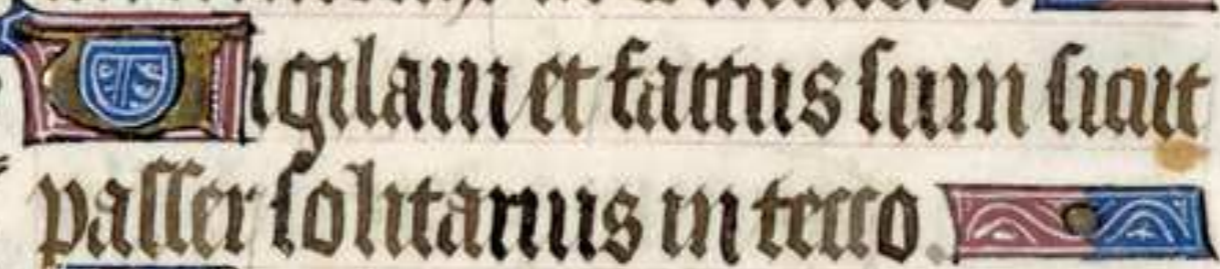 Vigilaui et factus sum sicut
passer solitarius in tecto.